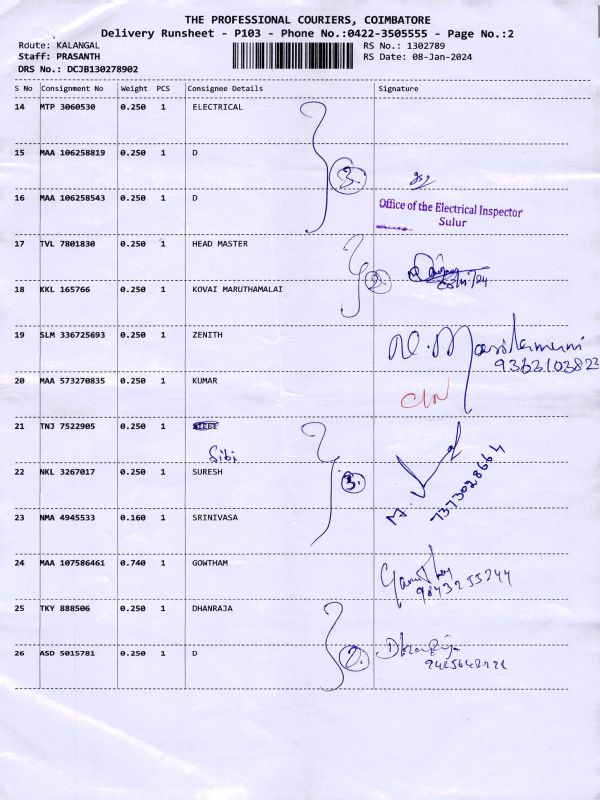 THE PROFESSIONAL COURIERS, COIMBATORE
Delivery Runsheet - P103 - Phone No.:0422-3505555 - Page No.:2
Route: KALANGAL RS No.: 1302789
Staff: PRASANTH RS Date: 08-Jan-2024
DRS No.: DCJB130278902
S No Consignment No Weight PCS Consignee Details Signature
14 MTP 3060530 0.250 1 ELECTRICAL
15 MAA 106258819 0.250 1 D
3.
16 MAA 106258543 0.250 1 D
Office of the Electrical Inspector
Sulur
17 TVL 7801830 0.250 1 HEAD MASTER
2.
18 KKL 165766 0.250 1 KOVAI MARUTHAMALAI
19 SLM 336725693 0.250 1 ZENITH
20 MAA 573270835 0.250 1 KUMAR
21 TNJ 7522905 0.250 1
Sibi
22 NKL 3267017 0.250 1 SURESH
3.
7373028664
23 NMA 4945533 0.160 1 SRINIVASA
24 MAA 107586461 0.740 1 GOWTHAM
9843255244
25 TKY 888506 0.250 1 DHANRAJA
26 ASD 5015781 0.250 1 D
2.